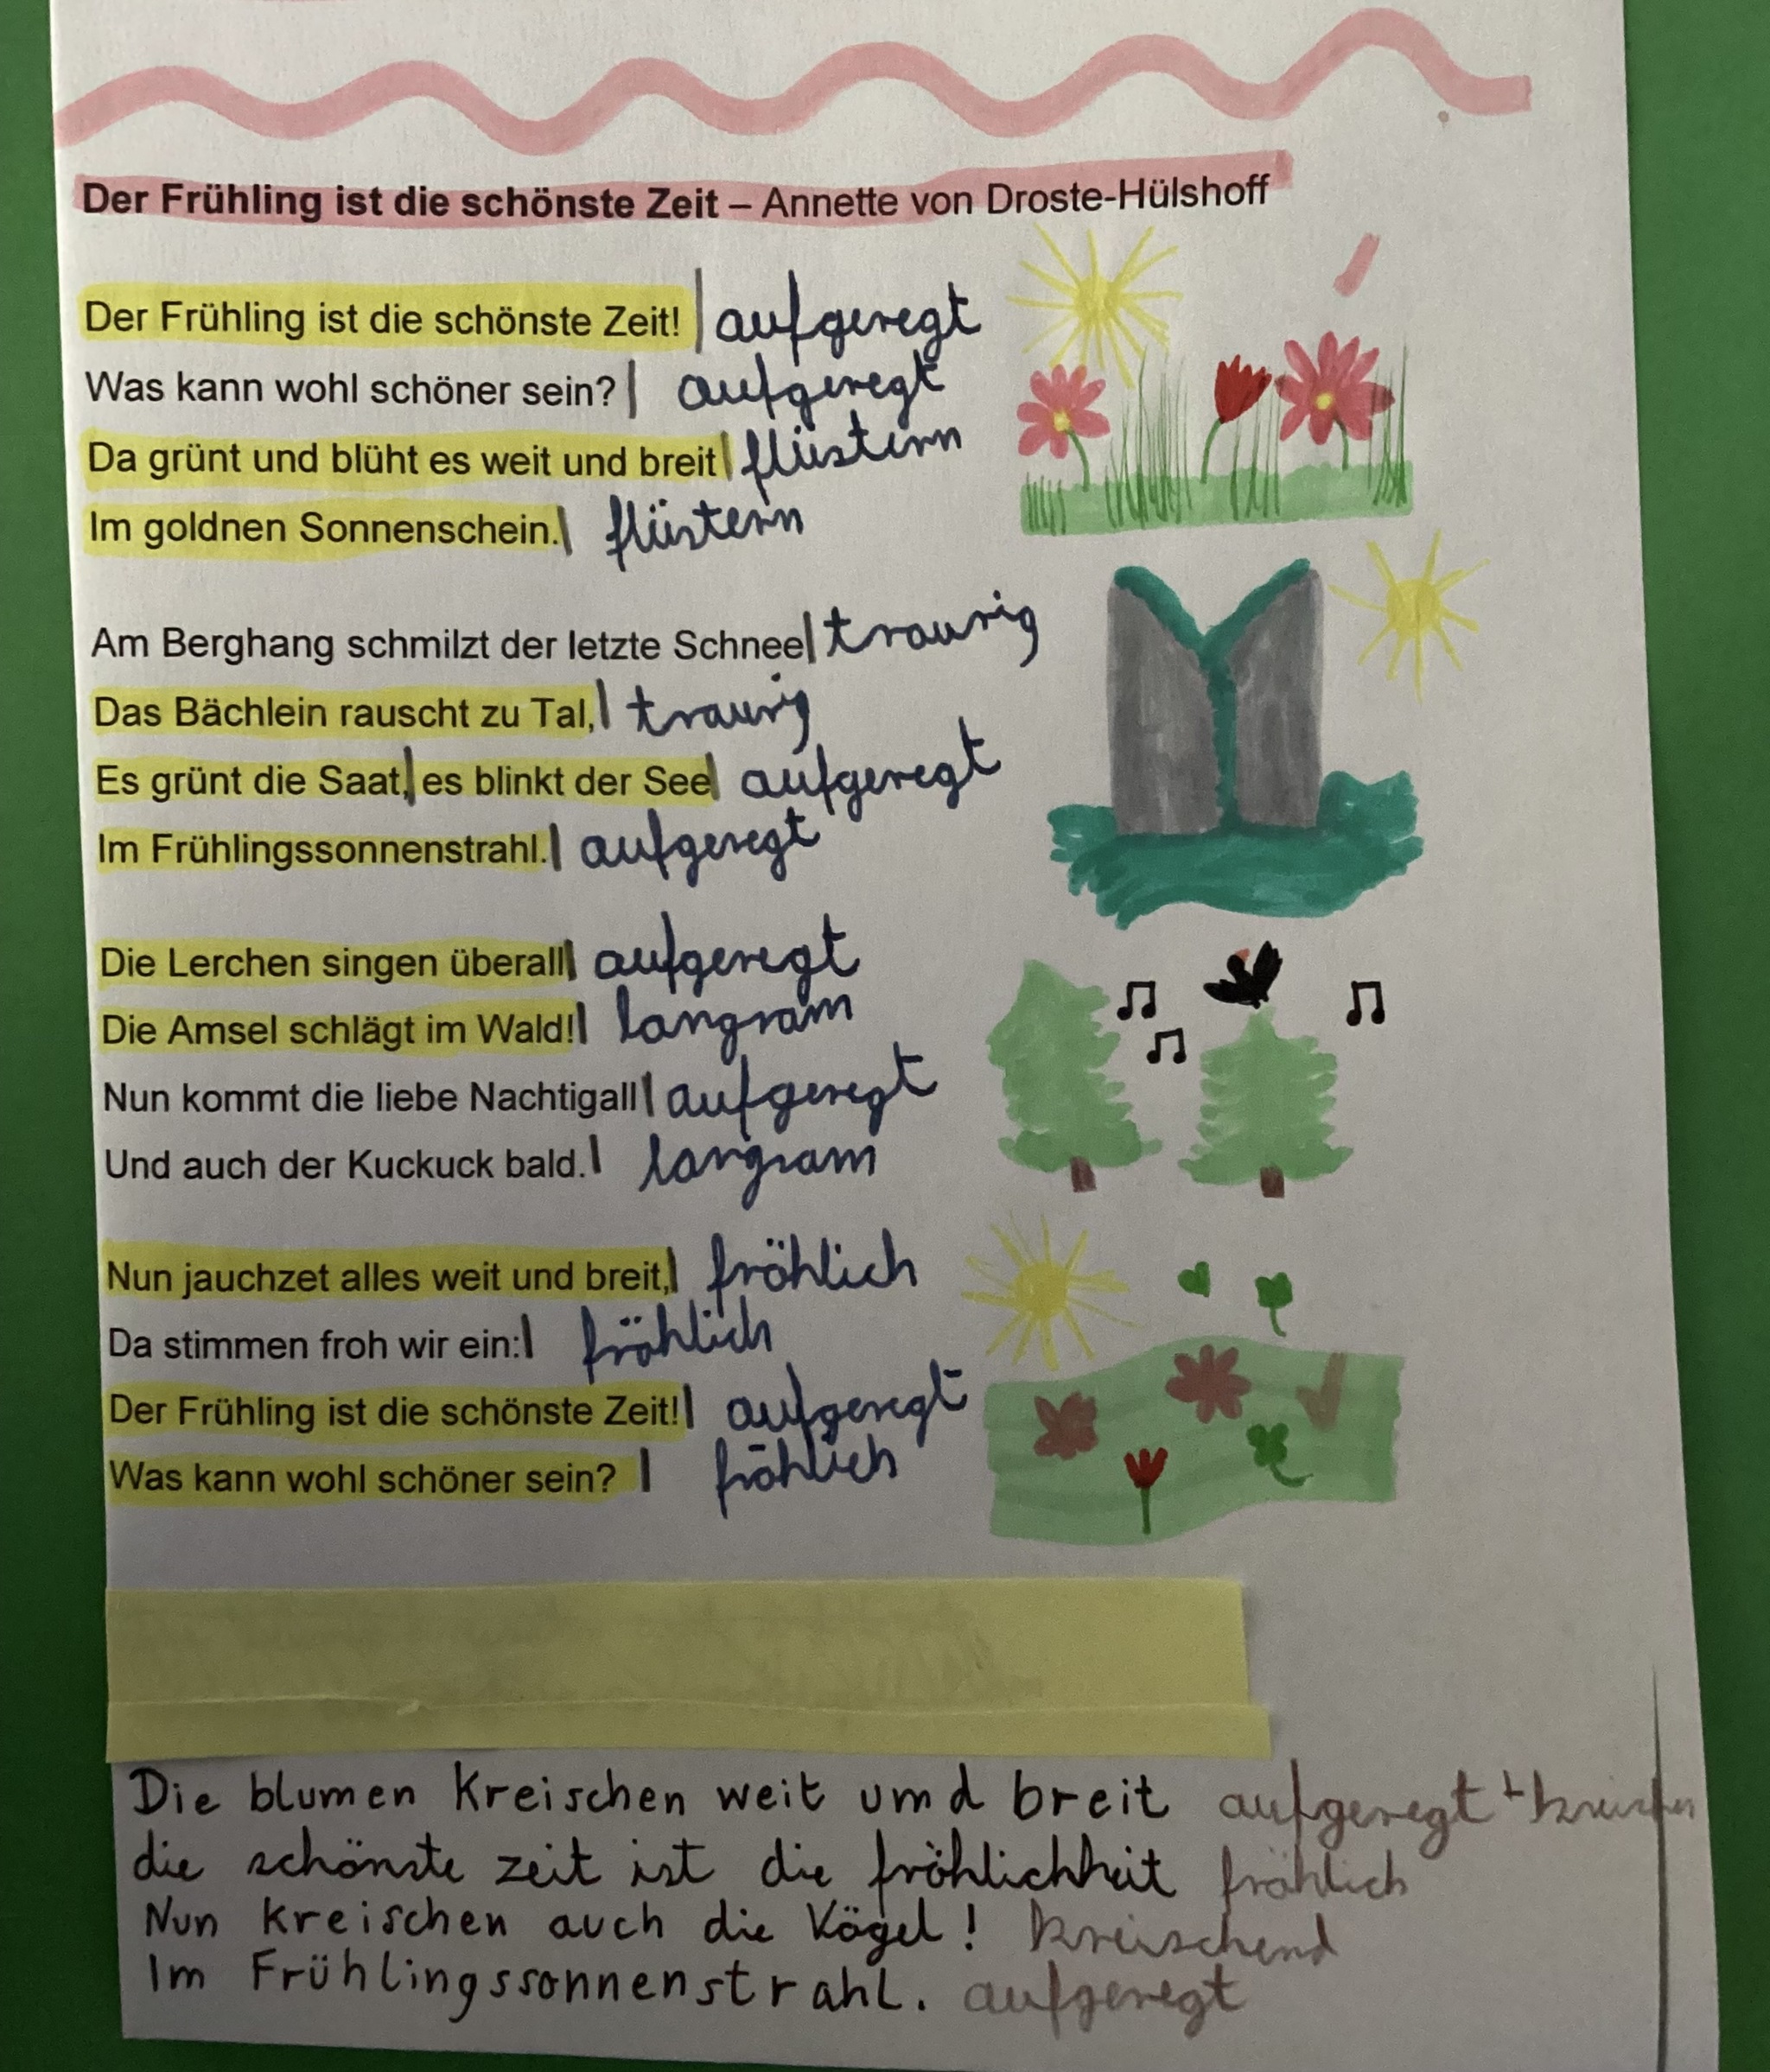 Der Frühling ist die schönste Zeit – Annette von Droste-Hülshoff
Der Frühling ist die schönste Zeit! aufgeregt
Was kann wohl schöner sein? aufgeregt
Da grünt und blüht es weit und breit flüstern
Im goldnen Sonnenschein. flüstern
Am Berghang schmilzt der letzte Schnee traurig
Das Bächlein rauscht zu Tal, traurig
Es grünt die Saat, es blinkt der See aufgeregt
Im Frühlingssonnenstrahl. aufgeregt
Die Lerchen singen überall aufgeregt
Die Amsel schlägt im Wald! langsam
Nun kommt die liebe Nachtigall aufgeregt
Und auch der Kuckuck bald. langsam
Nun jauchzet alles weit und breit, fröhlich
Da stimmen froh wir ein: fröhlich
Der Frühling ist die schönste Zeit! aufgeregt
Was kann wohl schöner sein? fröhlich
Die blumen Kreischen weit umd breit aufgeregt +
die schönste zeit ist die fröhlichkeit fröhlich
Nun kreischen auch die Vögel! kreischend
Im Frühlingssonnenstrahl. aufgeregt